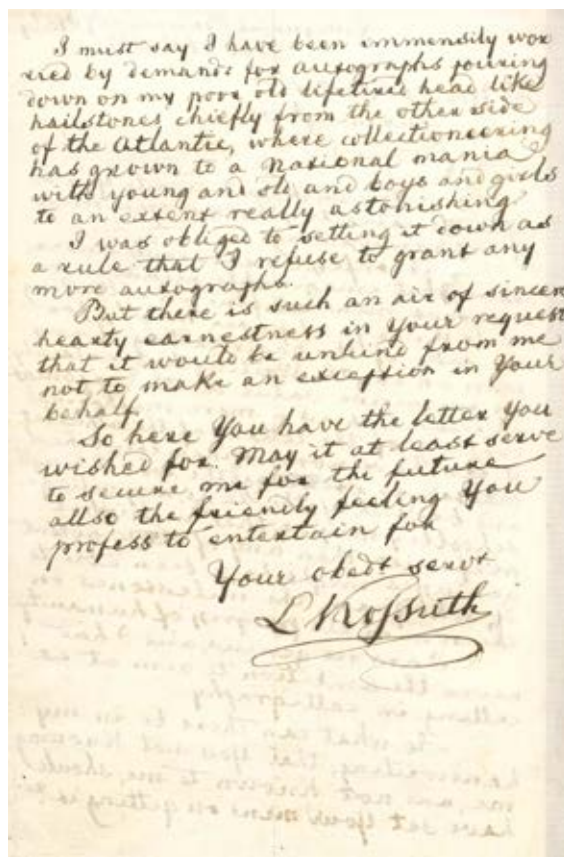 I must say I have been immensily wor
ried by demands for autographs pouring
down on my poor old lifetired head like
hailstones chiefly from the other side
of the Atlantic, where collectioneering
has grown to a National mania
with young and old and boys and girls
to an extent really astonishing
I was obliged to setting it down as
a rule that I refuse to grant any
more autographs.
But there is such an air of sincere
hearty earnestness in Your request
that it would be unkind from me
not to make an exception in Your
behalf
So here You have the letter You
wished for. May it at least serve
to secure me for the future
allso the friendly feeling You
profess to entertain for
Your obedt servt
L Kossuth